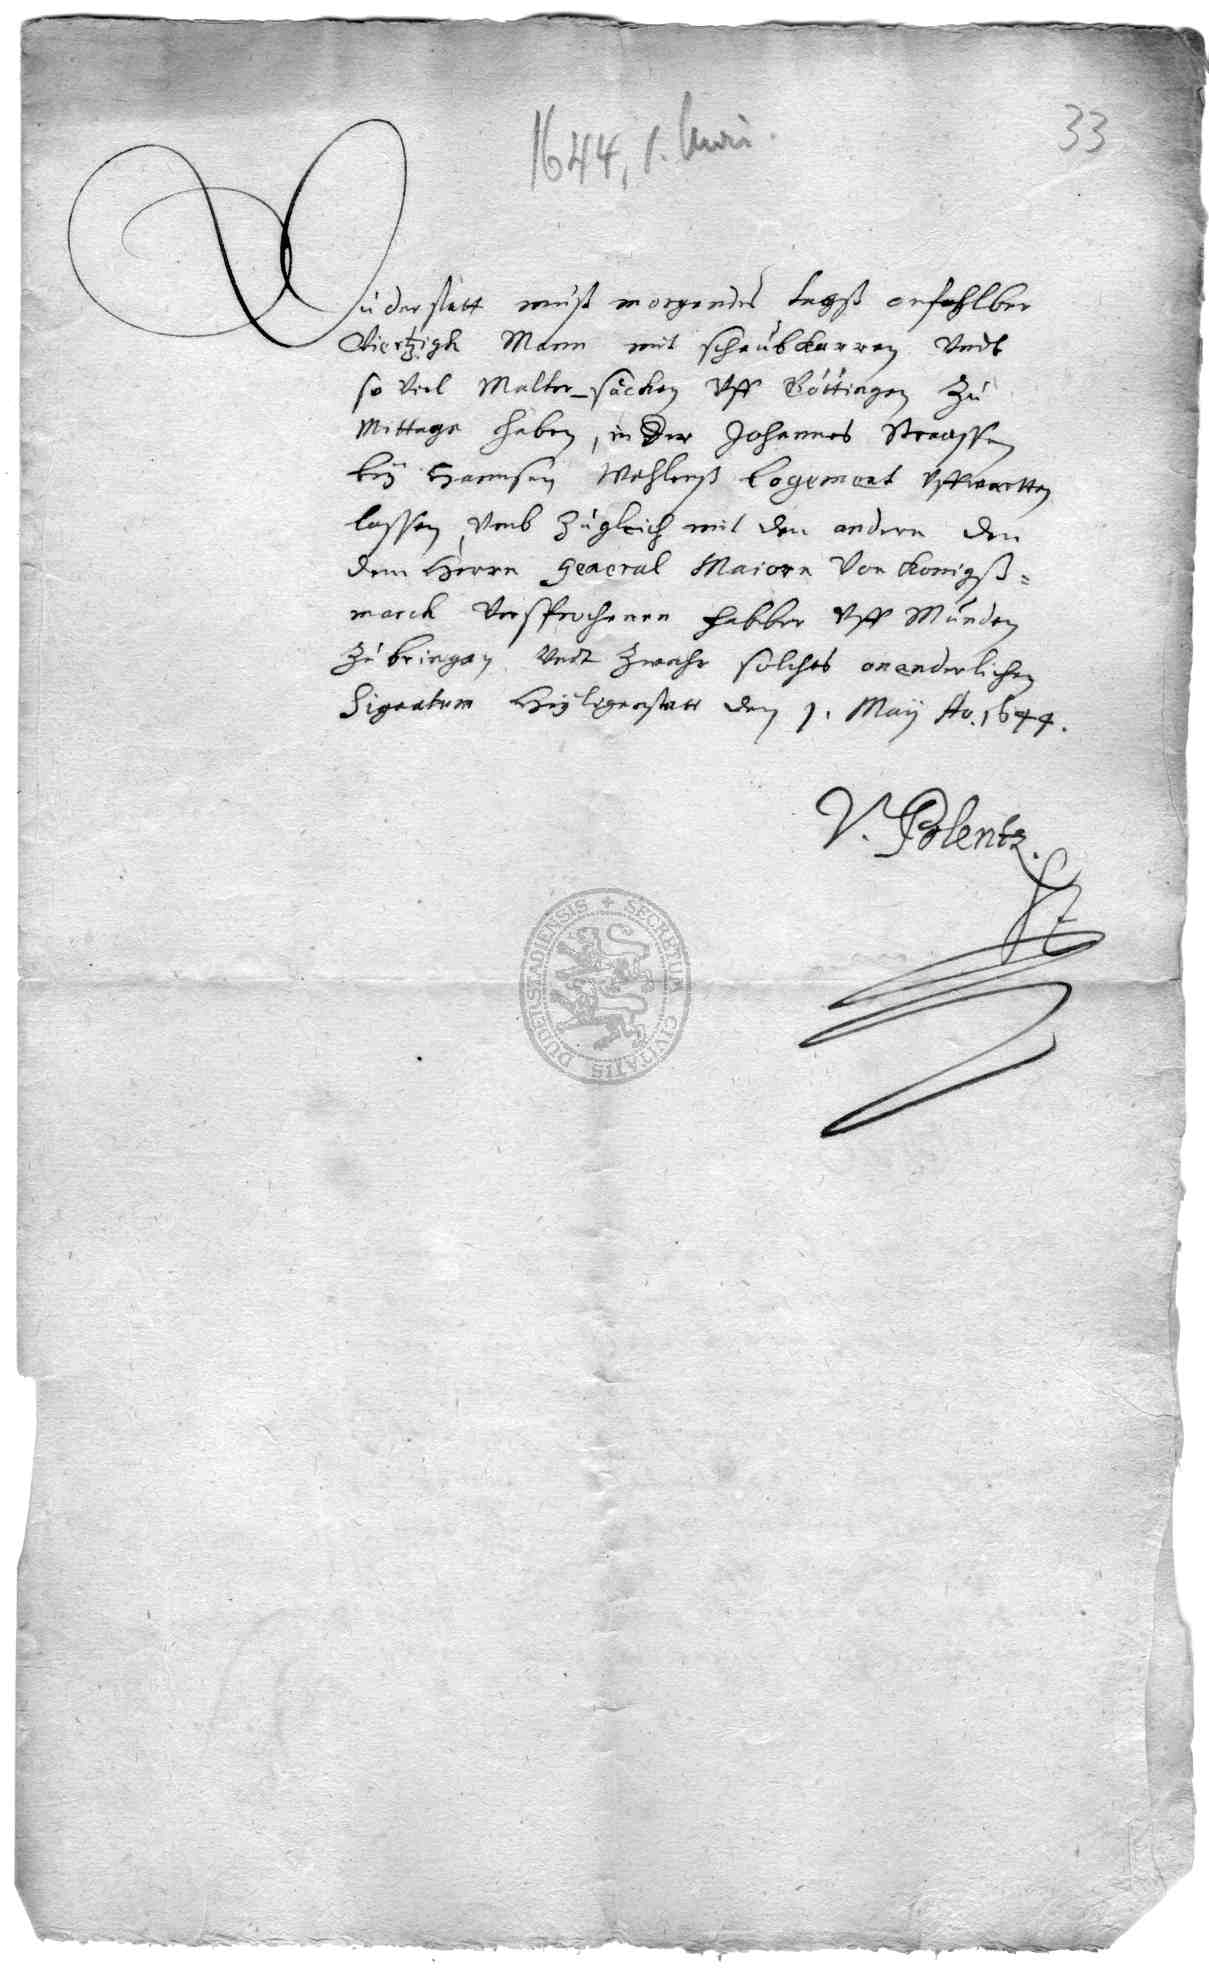 1644, 1. Mai.
33
Duderstatt muß morgendes tagß onfehlbar
Viertzigk Mann mit schaubkarren Undt
so viel Malter-säcken Uff Göttingen Zu
Mittage haben, in der Johannes Straassen
bey Hannsen Wehlerß Logement Uffwartten
lassen, Umb Zugleich mit den andern den
dem Herrn General Maiorn Von Konigß=
marck Versprochenen habber Uff Münden
Zubringen Undt Zwahr solches onenderlichen
Signatum Heyligenstatt den 1. Maij Ao. 1644.
V. Polentz.
SECRETUM CIVITATIS DUDERSTADIENSIS